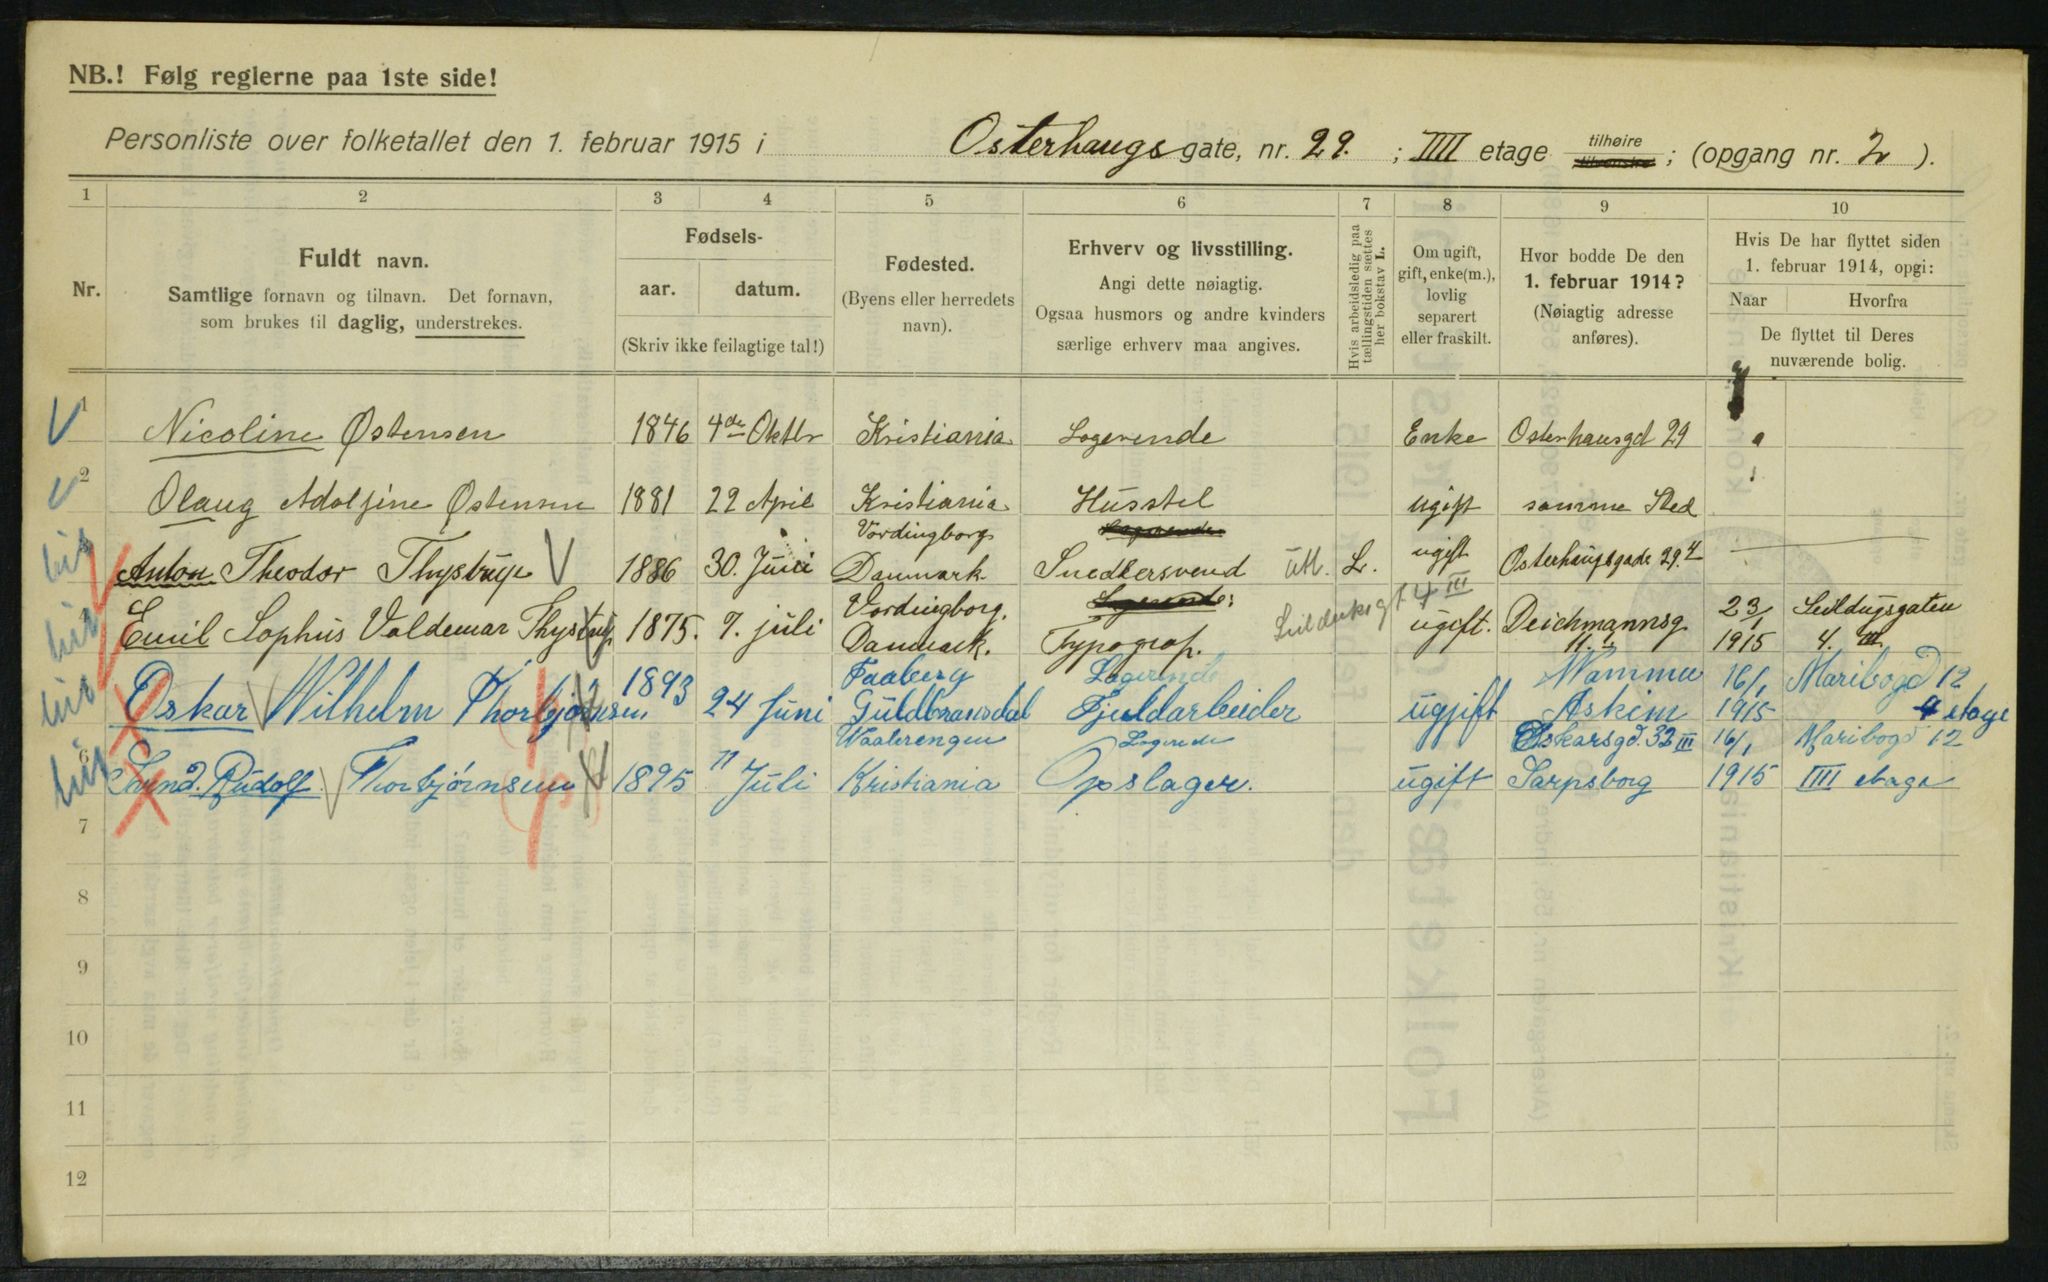 NB.! Følg reglerne paa 1ste side!
Personliste over folketallet den 1. februar 1915 i Osterhaugs gate, nr. 29. ; IIII etage tilhøire tilvenstre ; (opgang nr. 2 ).
1 2 3 4 5 6 7 8 9 10
Nr.
Fuldt navn.
Samtlige fornavn og tilnavn. Det fornavn,
som brukes til daglig, understrekes.
Fødsels-
aar. datum.
(Skriv ikke feilagtige tal!)
Fødested.
(Byens eller herredets
navn).
Erhverv og livsstilling.
Angi dette nøiagtig.
Ogsaa husmors og andre kvinders
særlige erhverv maa angives.
Hvis arbeidsledig paa
tællingstiden sættes
her bokstav L.
Om ugift,
gift, enke(m.),
lovlig
separert
eller fraskilt.
Hvor bodde De den
1. februar 1914?
(Nøiagtig adresse
anføres).
Hvis De har flyttet siden
1. februar 1914, opgi:
Naar Hvorfra
De flyttet til Deres
nuværende bolig.
1 Nicoline Østensen 1846 4de Oktbr Kristiania Logerende Enke Osterhausgd 29
2 Olaug Adolfine Østensen 1881 22 April Kristiania Husstel ugift samme Sted
Vordingborg Logerende
Anton Theodor Thystrup 1886 30. Juni Danmark Snedkersvend L. ugift Osterhaugsgade 29.4
Vordingborg. Logerende 23/1 Seildugsgaten
Emil Sophus Valdemar Thystrup 1875. 7. juli Danmark. Typograf. ugift. Deichmannsg 1915 4. III
Faaberg Logerende 16/1 Maribogd 12
Oskar Wilhelm Thorbjørnsen 1893 24 Juni Guldbransdal Fjeldarbeider ugift Askim 1915 4 etage
Waalerengen Logerende Oskarsgd. 32 III 16/1 Maribogd 12
6 Rudolf Thorbjørnsen 1895 11 Juli Kristiania Opslager. ugift Sarpsborg 1915 IIII etage
7
8
9
10
11
12